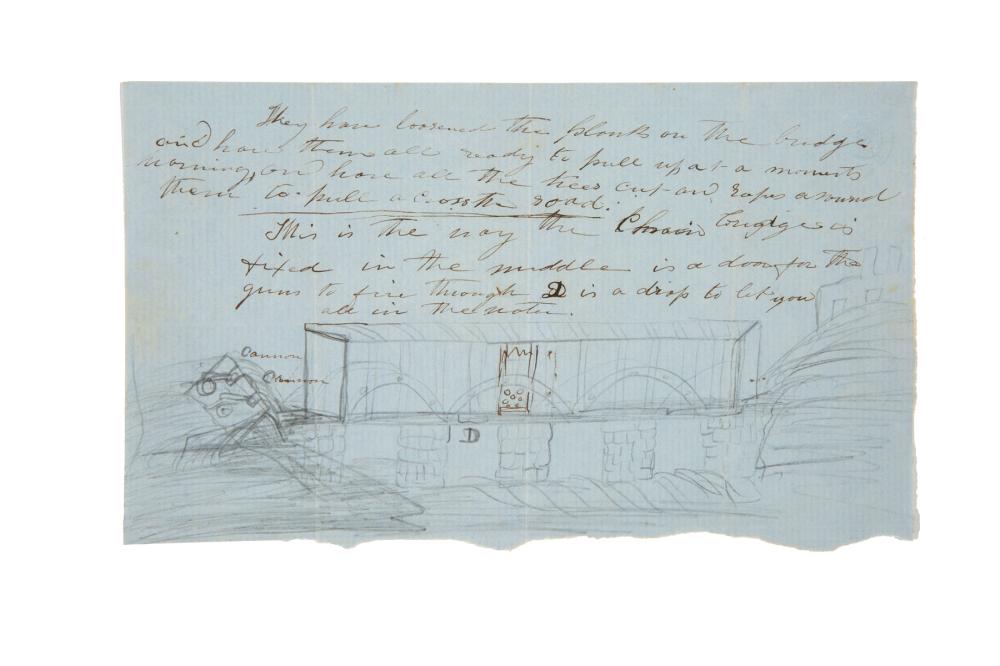 They have loosened the planks on the bridge
and have them all ready to pull up at a moments
warning, and have all the trees cut and ropes around
them to pull across the road.
This is the way the Chain Bridge is
fixed in the middle is a door for the
guns to fire through D is a drop to let you
all in the water.
Cannon
Cannon
D